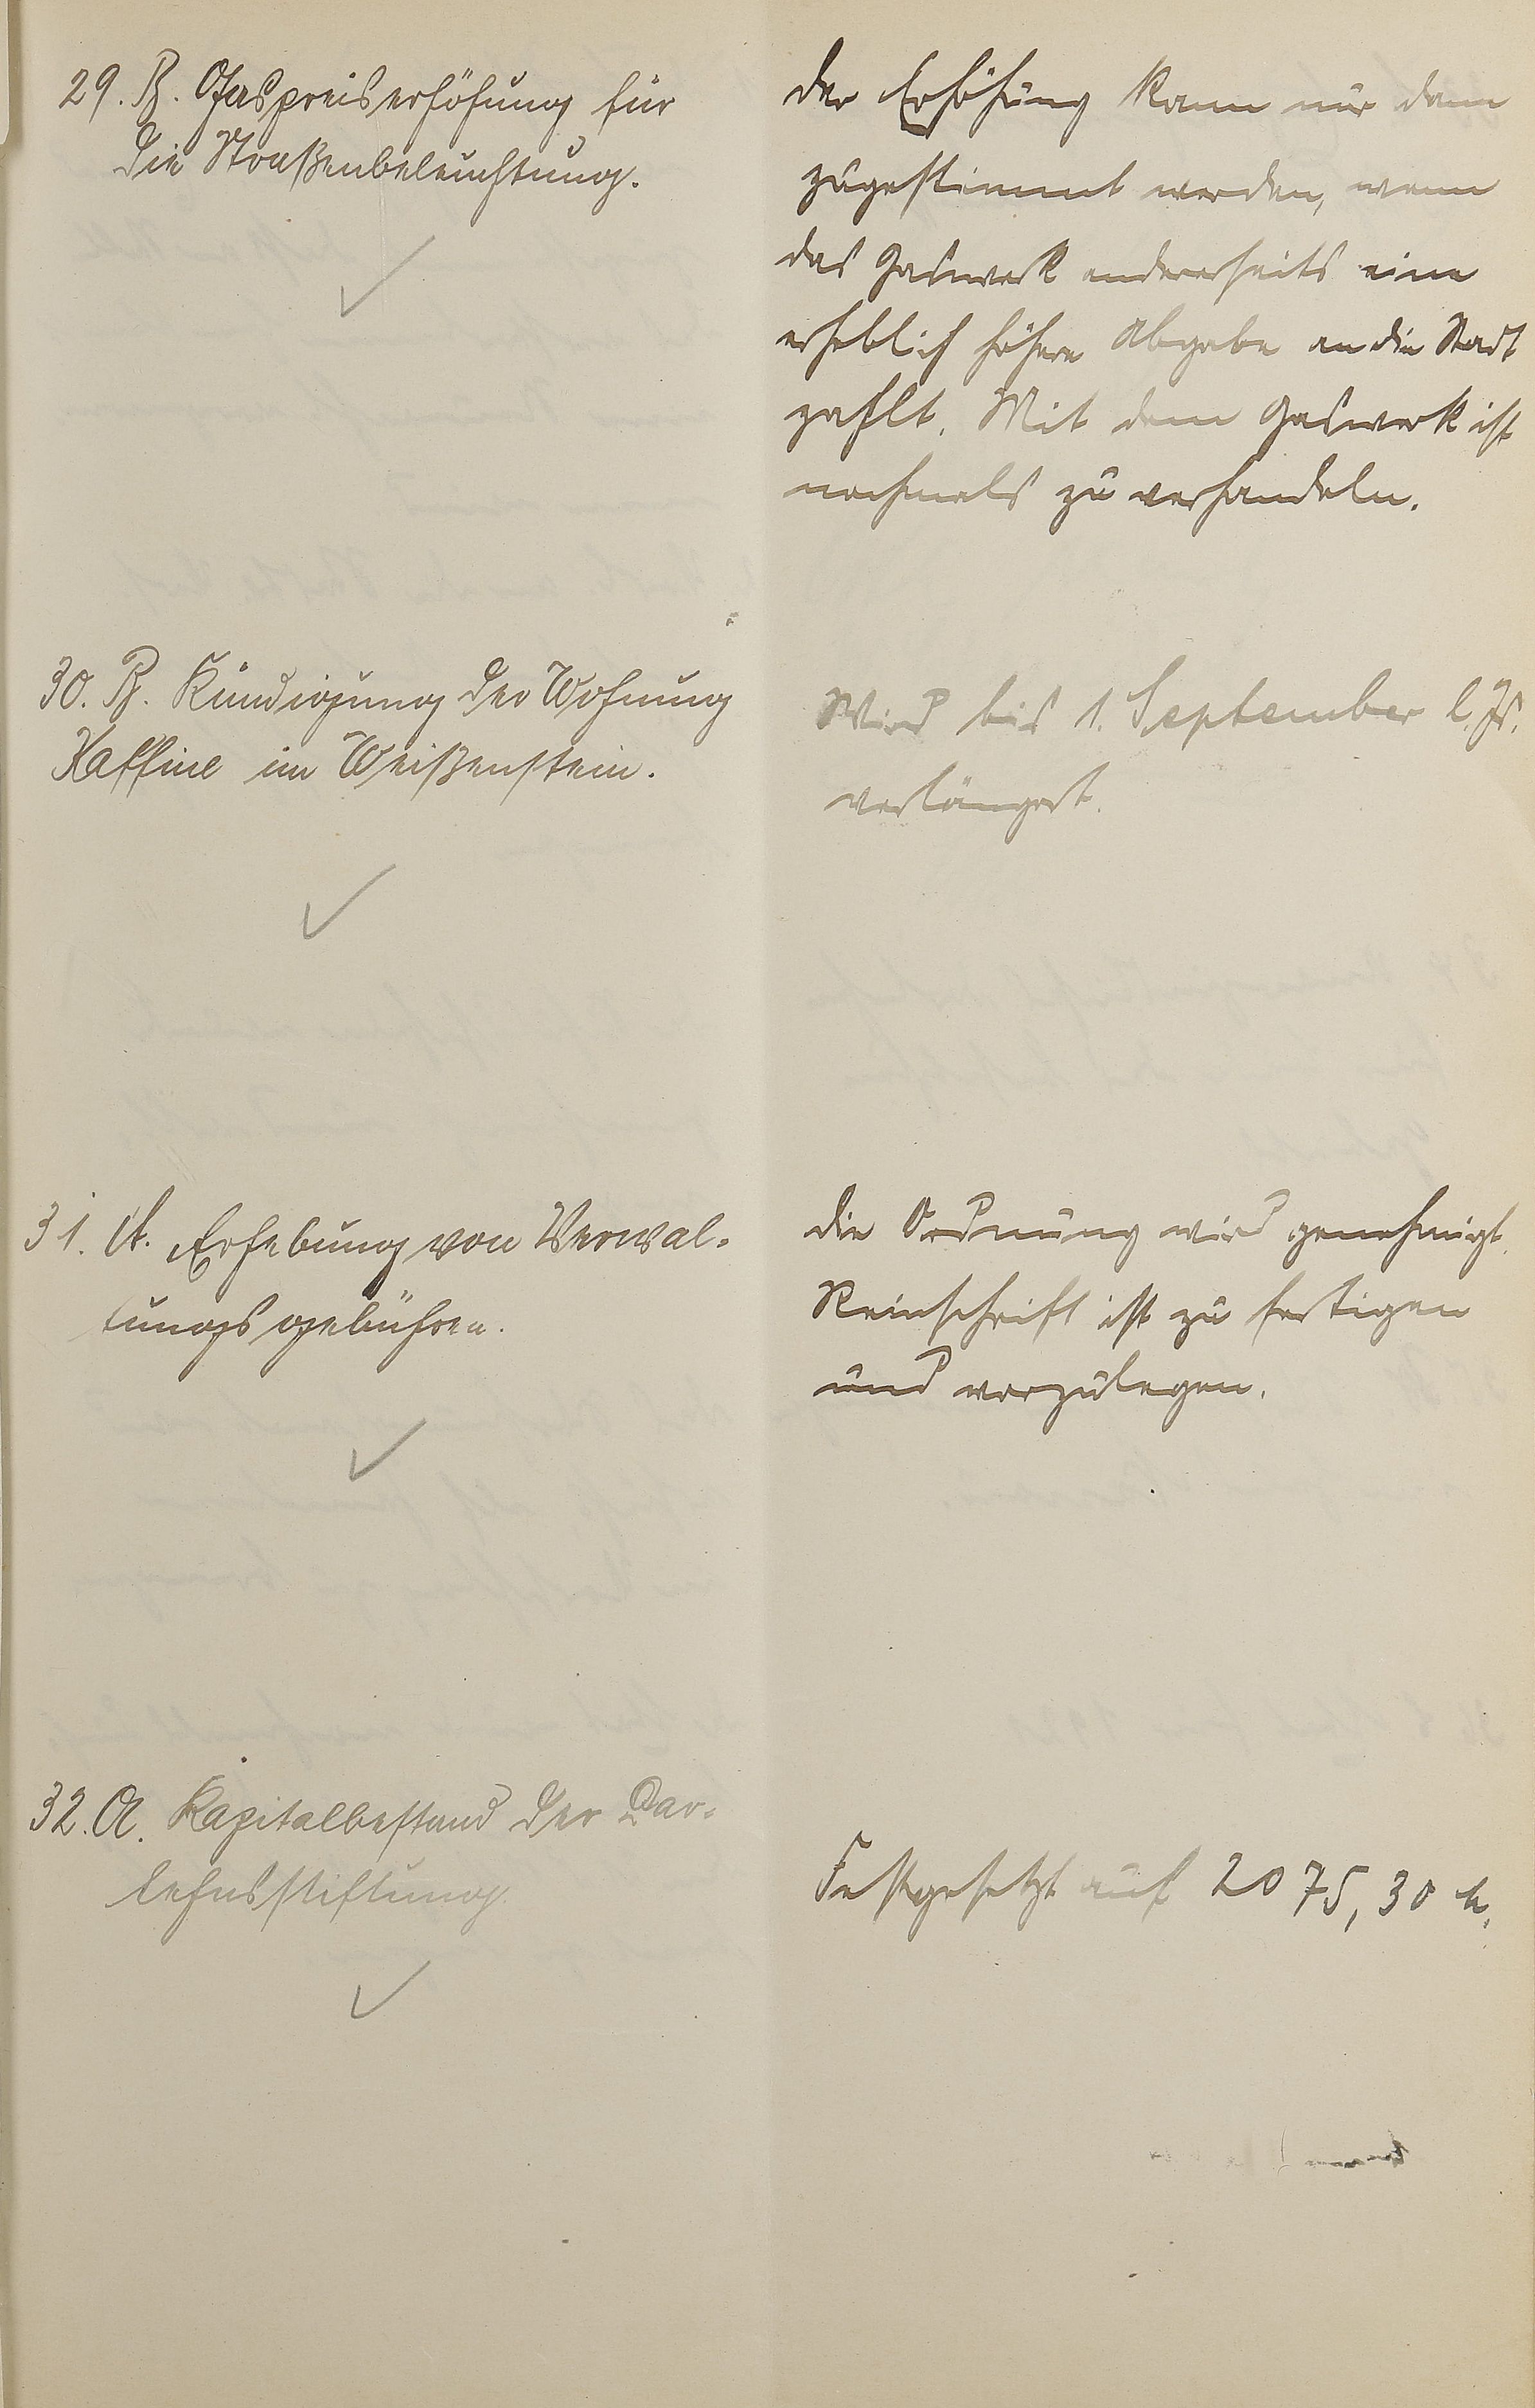 29. B. Gaspreiserhöhung für
die Straßenbeleuchtung.
der Erhöhung kann nur dann
zugestimmt werden, wenn
das Gaswerk andererseits eine
erheblich höhere Abgabe an die Stadt
zahlt. Mit dem Gaswerk ist
nochmals zu verhandeln.
30. B. Kündigung der Wohnung
im Weißenstein.
Wird bis 1. September l. Js.
verlängert.
31. A. Erhebung von Verwal-
tungsgebühren.
die Ordnung wird genehmigt.
Reinschrift ist zu fertigen
und vorzulegen.
32. A. Kapitalbestand der Dar-
lehnsstiftung.
Festgesetzt auf 2075,30 M.